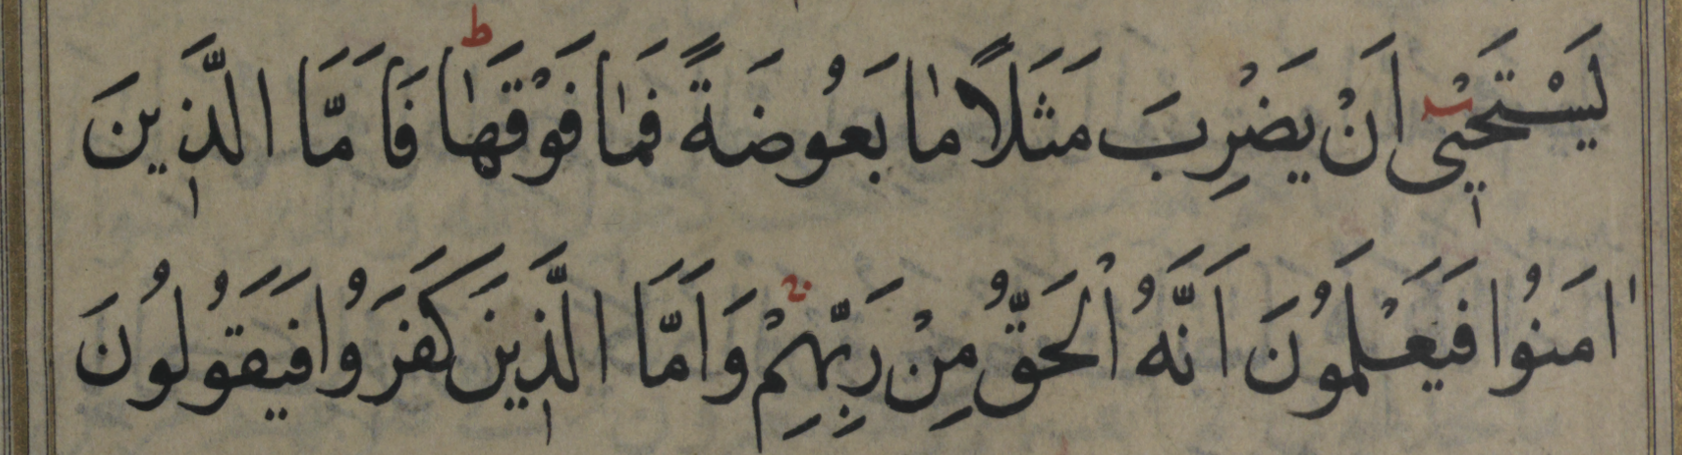 يَسْتَحْيٖى اَنْ يَضْرِبَ مَثَلًا مٰا بَعُوضَةً فَمٰا فَوْقَهٰا ط فَاَمَّا الَّذٖينَ
اٰمَنُوا فَيَعْلَمُونَ اَنَّهُ الْحَقُّ مِنْ رَبِّهِمْ وَاَمَّا الَّذٖينَ كَفَرُوا فَيَقُولُونَ